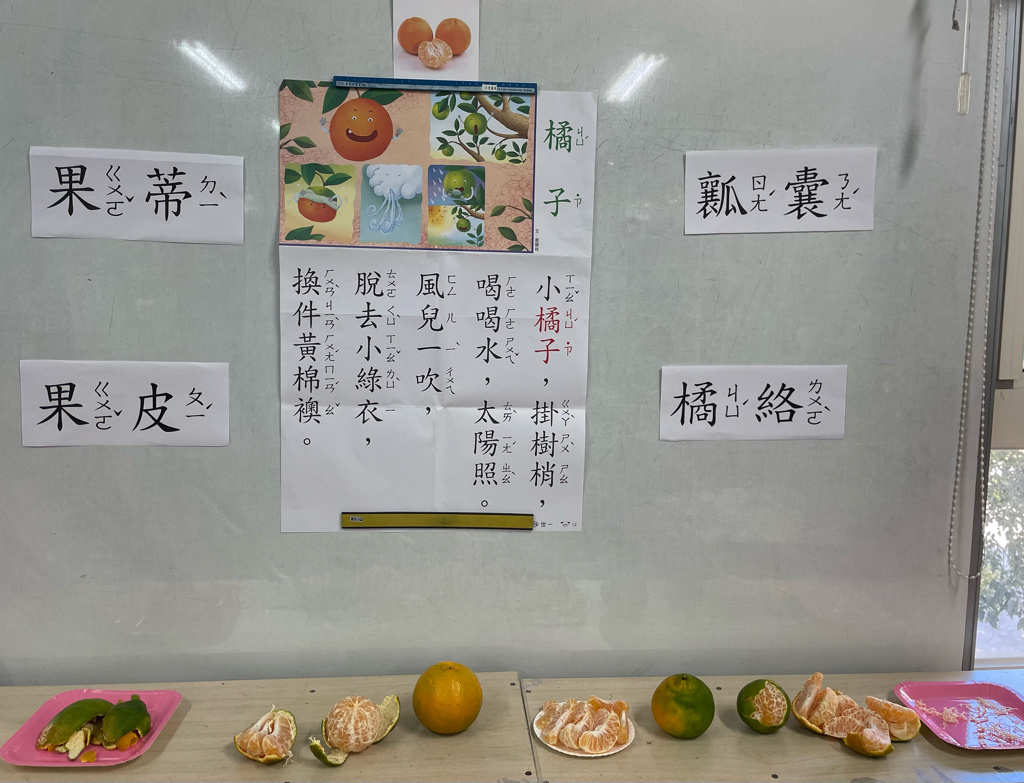 橘ㄐㄩˊ子˙ㄗ
小ㄒㄧㄠˇ橘ㄐㄩˊ子˙ㄗ，掛ㄍㄨㄚˋ樹ㄕㄨˋ梢ㄕㄠ，
喝ㄏㄜ喝ㄏㄜ水ㄕㄨㄟˇ，太ㄊㄞˋ陽ㄧㄤˊ照ㄓㄠˋ。
風ㄈㄥ兒ㄦ一ㄧˋ吹ㄔㄨㄟ，
脫ㄊㄨㄛ去ㄑㄩˋ小ㄒㄧㄠˇ綠ㄌㄩˋ衣ㄧ，
換ㄏㄨㄢˋ件ㄐㄧㄢˋ黃ㄏㄨㄤˊ棉ㄇㄧㄢˊ襖ㄠˇ。
世一
果ㄍㄨㄛˇ蒂ㄉㄧˋ
果ㄍㄨㄛˇ皮ㄆㄧˊ
瓤ㄖㄤˊ囊ㄋㄤˊ
橘ㄐㄩˊ絡ㄌㄨㄛˋ